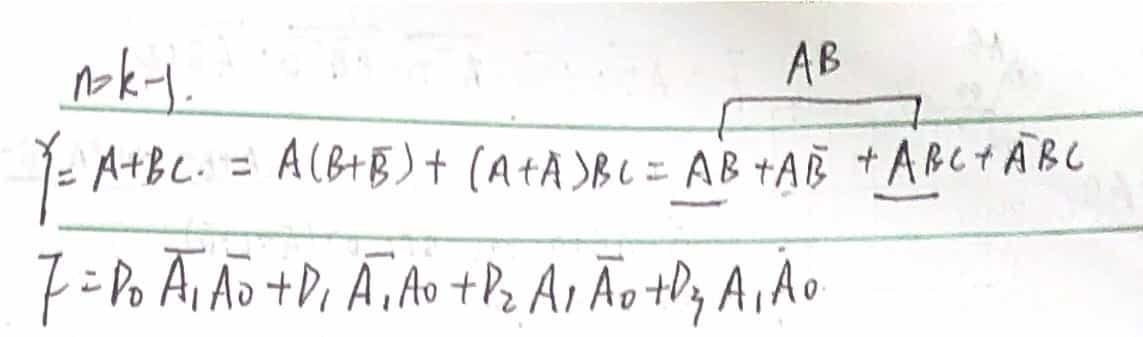 n=k-1.
AB
Y = A+BC. = A(B+B̅) + (A+A̅)BC = AB + AB̅ + ABC + A̅BC
F = D₀ A̅₁A̅₀ + D₁ A̅₁A₀ + D₂ A₁A̅₀ + D₃ A₁A₀